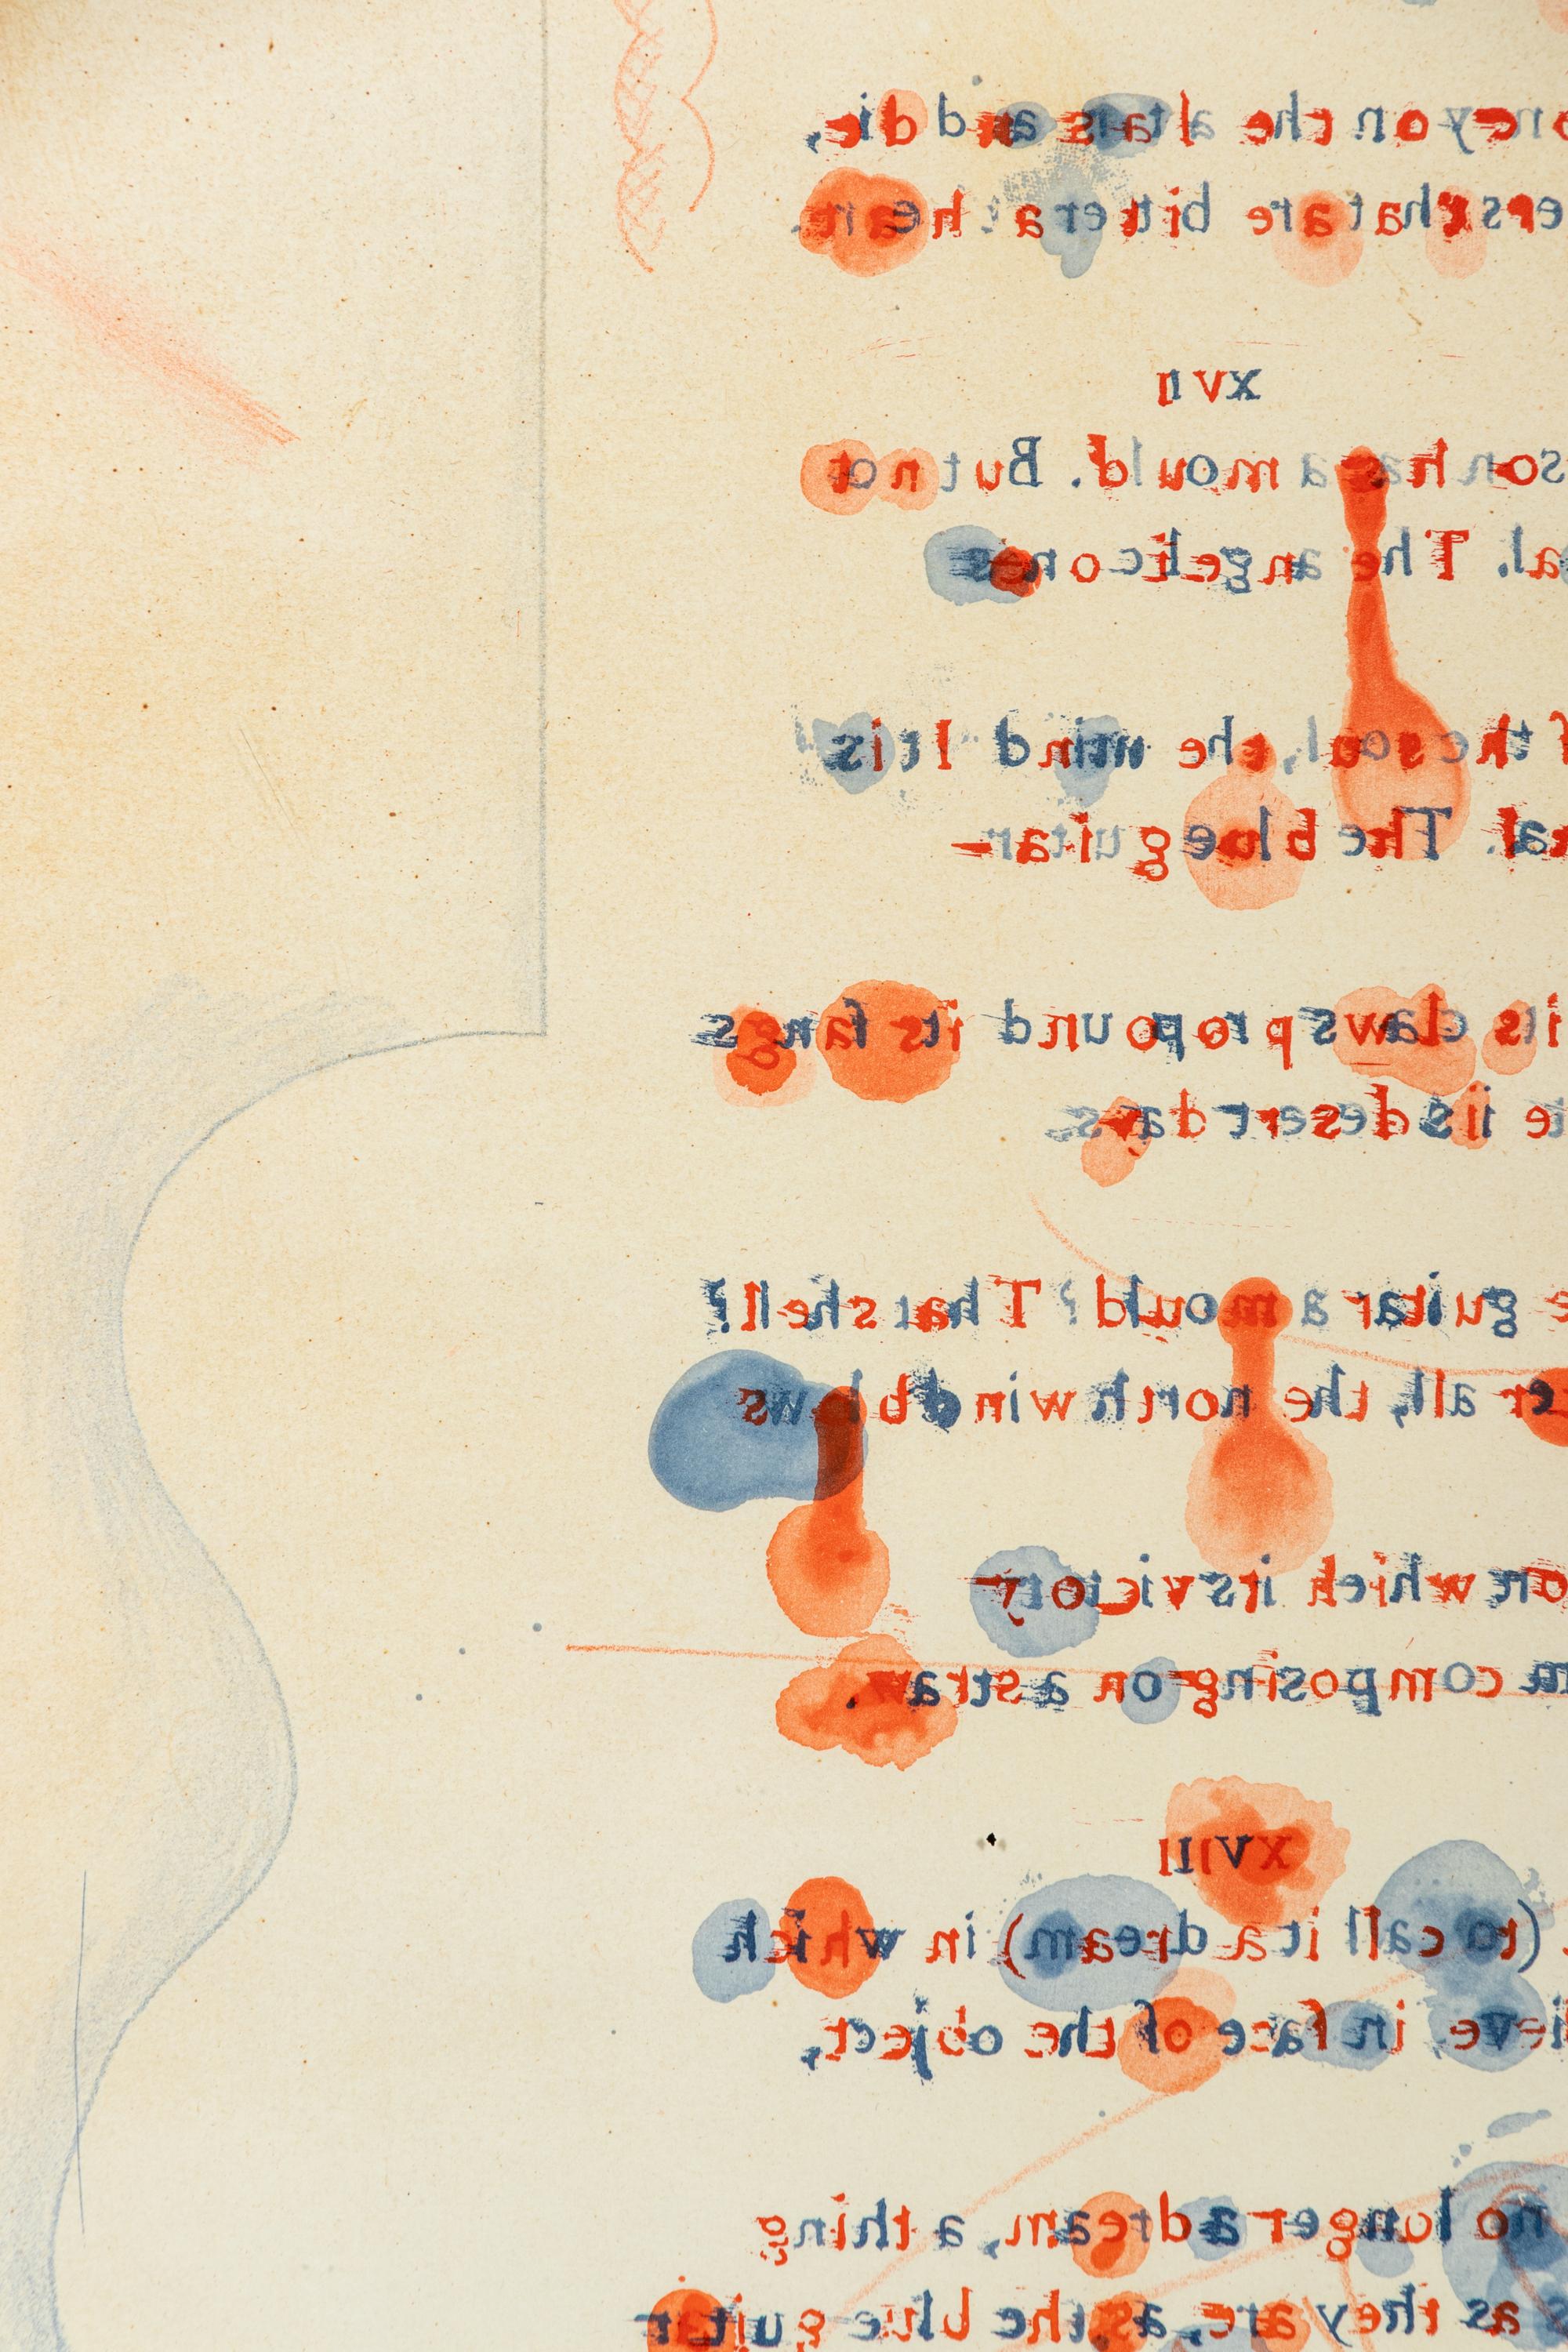 ney on the altars and die,
ers that are bitter at heart.
XVII
son has a mould. But not
al. The angelic ones
f the soul, the mind It is
al. The blue guitar—
its claws propound its fangs
te its desert days.
e guitar a mould? That shell?
er all, the north wind blows
on which its victory—
m composing on a straw.
XVIII
(to call it a dream) in which
ieve, in face of the object,
no longer a dream, a thing
s as they are, as the blue guitar